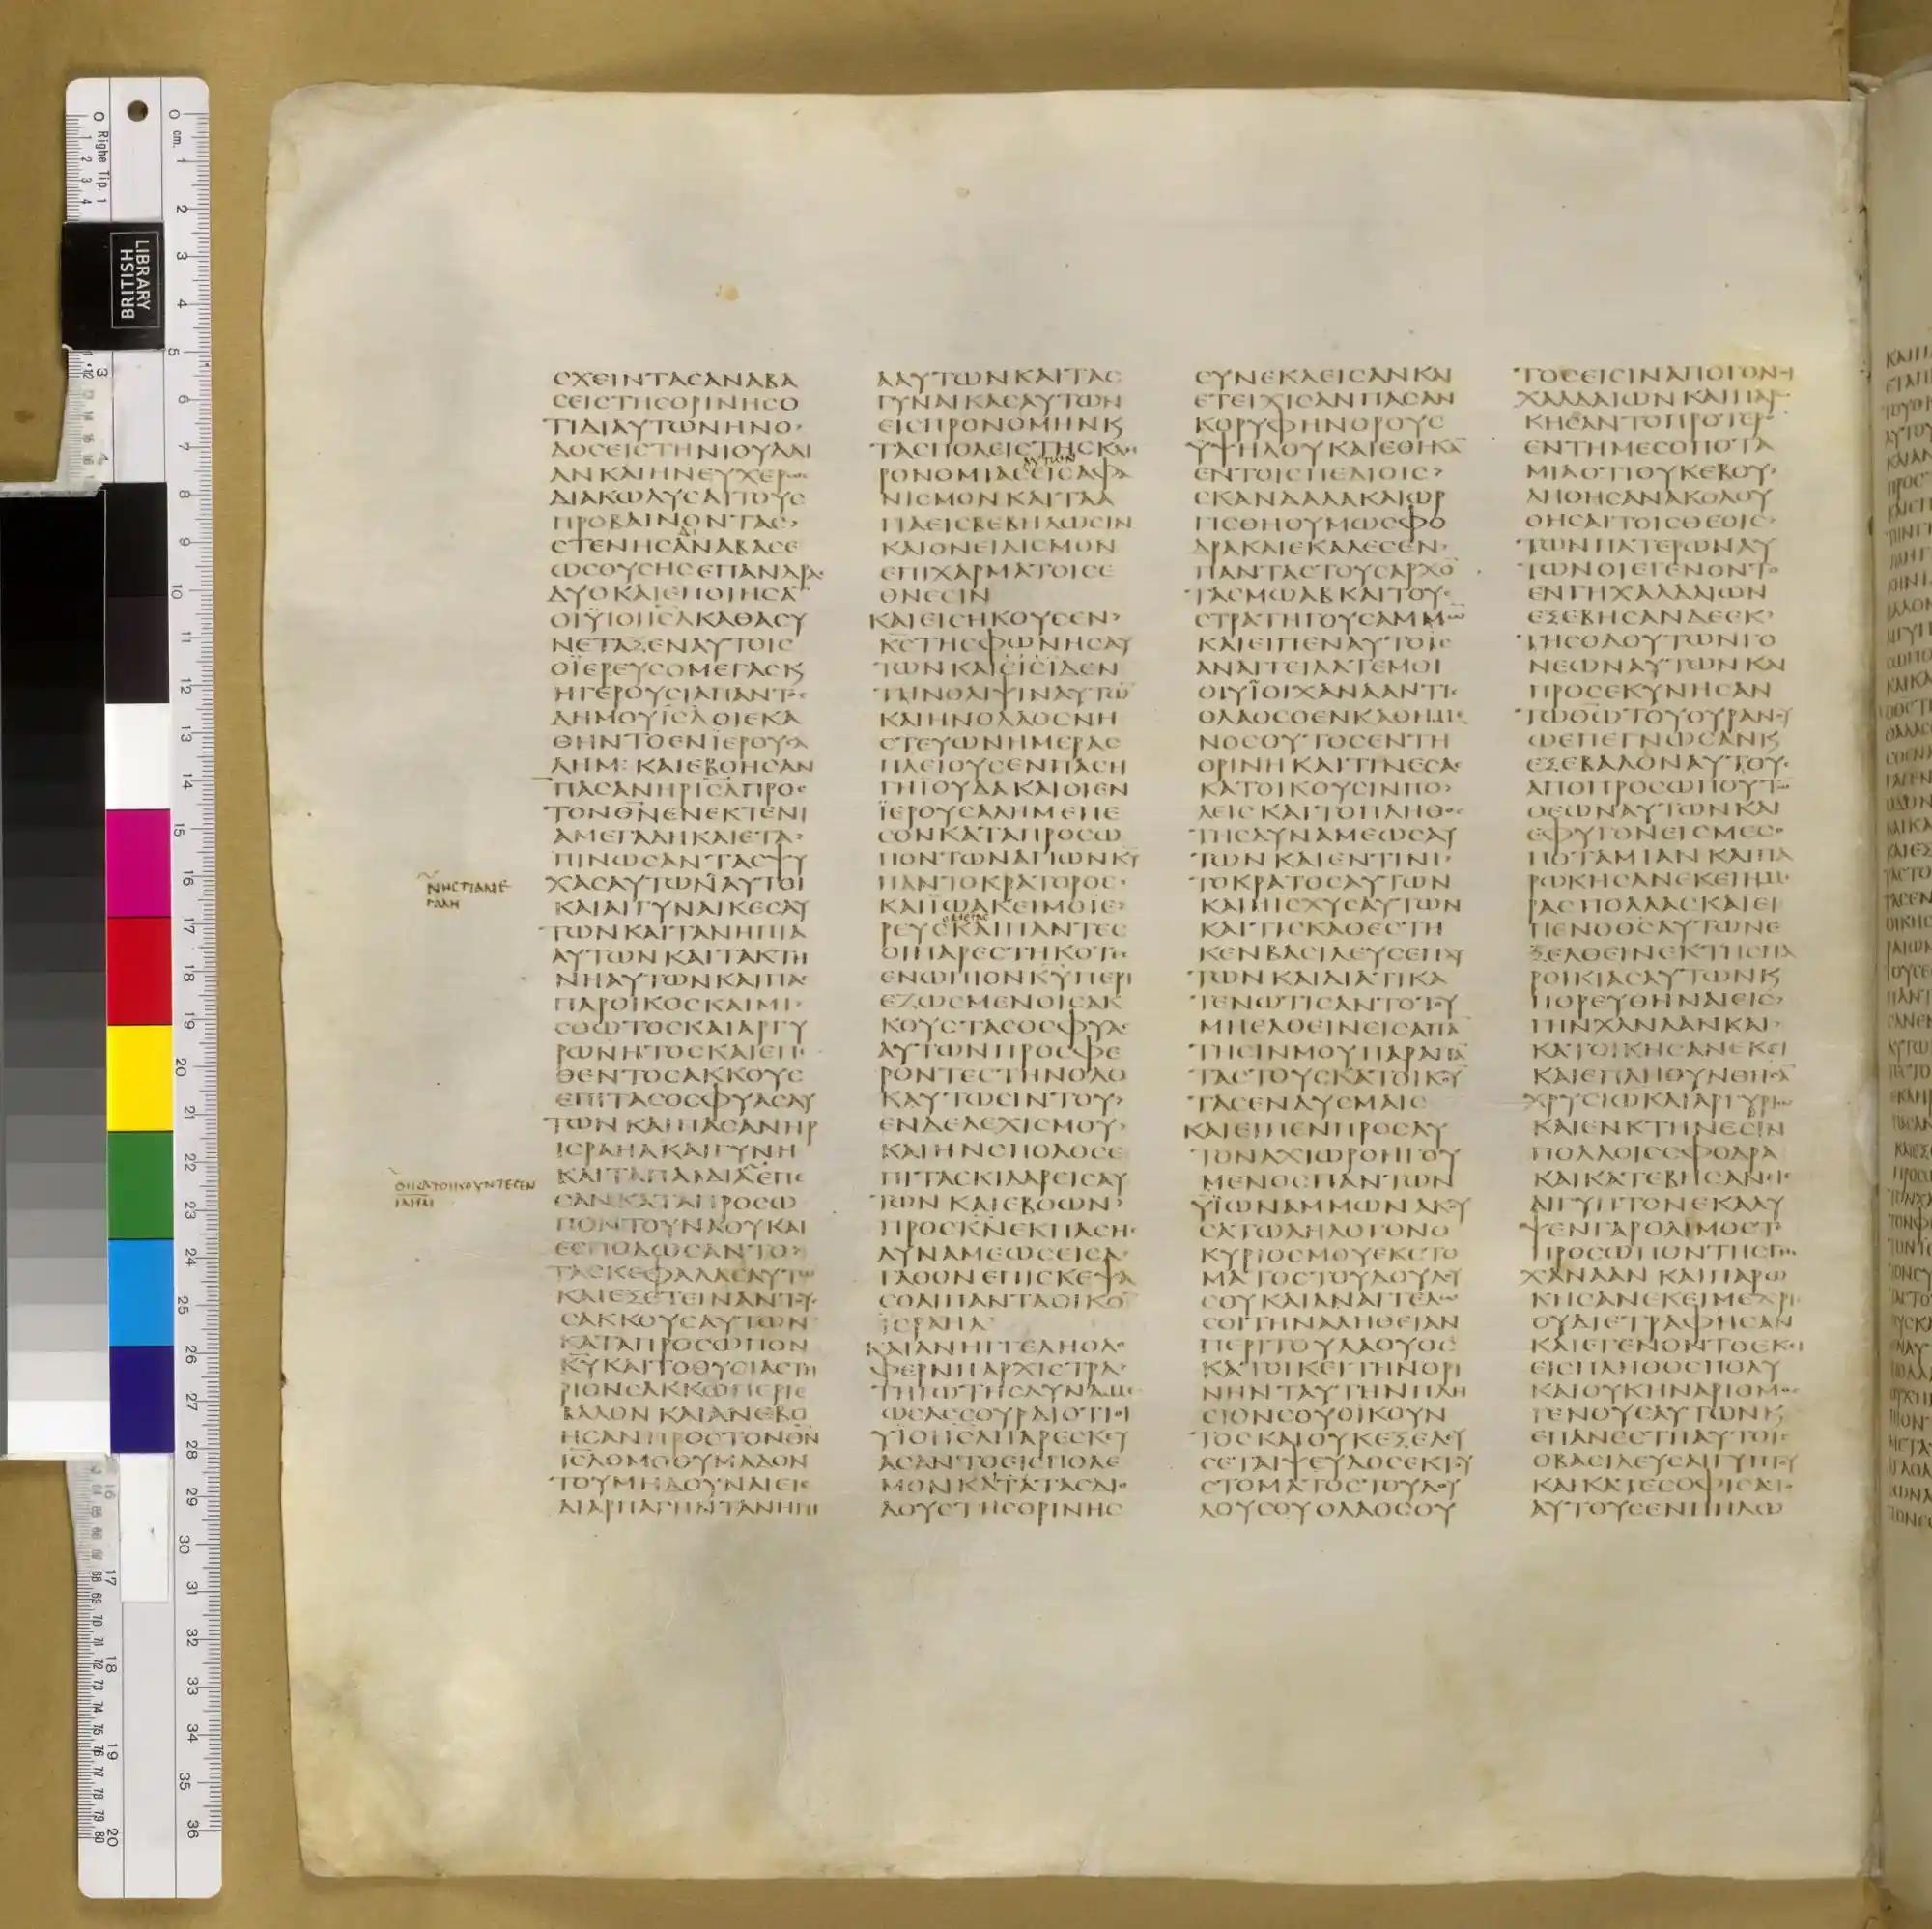 ΣΧΕΙΝΤΑΣΑΝΑΒΑ
ΣΕΙΣΤΗΣΟΡΙΝΗΣΟ
ΤΙΔΙΑΥΤΩΝΗΝΟ
ΔΟΣΕΙΣΤΗΝΙΟΥΔΑΙ
ΑΝΚΑΙΗΝΕΥΧΕΡΩΣ
ΔΙΑΚΩΛΥΣΑΙΤΟΥΣ
ΠΡΟΒΑΙΝΟΝΤΑΣ
ΣΤΕΝΗΣΑΝΑΒΑΣΕ
ΩΣΟΥΣΗΣΕΠΑΝΔΡΑΣ
ΔΥΟΚΑΙΕΠΟΙΗΣΑ̅
ΟΙΫΙΟΙΙΣΛΚΑΘΑΣΥ
ΝΕΤΑΞΕΝΑΥΤΟΙΣ
ΟΪΕΡΕΥΣΟΜΕΓΑΣΚ
ΗΓΕΡΟΥΣΙΑΠΑΝΤΟΣ
ΔΗΜΟΥΙΣΛΟΙΕΚΑ
ΘΗΝΤΟΕΝΪΕΡΟΥΣΑ
ΛΗΜ: ΚΑΙΕΒΟΗΣΑΝ
ΠΑΣΑΝΗΡΙΣΛΠΡΟΣ
ΤΟΝΘΝΕΝΕΚΤΕΝΙ
ΑΜΕΓΑΛΗΚΑΙΕΤΑ
ΠΙΝΩΣΑΝΤΑΣΨΥ
ΧΑΣΑΥΤΩΝΑΥΤΟΙ
ΚΑΙΑΙΓΥΝΑΙΚΕΣΑΥ
ΤΩΝΚΑΙΤΑΝΗΠΙΑ
ΑΥΤΩΝΚΑΙΤΑΚΤΗ
ΝΗΑΥΤΩΝΚΑΙΠΑΣ
ΠΑΡΟΙΚΟΣΚΑΙΜΙ
ΣΘΩΤΟΣΚΑΙΑΡΓΥ
ΡΩΝΗΤΟΣΚΑΙΕΠΕ
ΘΕΝΤΟΣΑΚΚΟΥΣ
ΕΠΙΤΑΣΟΣΦΥΑΣΑΥ
ΤΩΝΚΑΙΠΑΣΑΝΗΡ
ΙΣΡΑΗΛΚΑΙΓΥΝΗ
ΚΑΙΤΑΠΑΙΔΙΑΕΠΕ
ΣΑΝΚΑΤΑΠΡΟΣΩ
ΠΟΝΤΟΥΝΑΟΥΚΑΙ
ΕΣΠΟΔΩΣΑΝΤΟ
ΤΑΣΚΕΦΑΛΑΣΑΥΤΩ
ΚΑΙΕΞΕΤΕΙΝΑΝΤΟΥΣ
ΣΑΚΚΟΥΣΑΥΤΩΝ
ΚΑΤΑΠΡΟΣΩΠΟΝ
ΚΥΚΑΙΤΟΘΥΣΙΑΣΤΗ
ΡΙΟΝΣΑΚΚΩΠΕΡΙΕ
ΒΑΛΟΝΚΑΙΑΝΕΒΟ
ΗΣΑΝΠΡΟΣΤΟΝΘΝ
ΙΣΛΟΜΟΘΥΜΑΔΟΝ
ΤΟΥΜΗΔΟΥΝΑΙΕΙΣ
ΔΙΑΡΠΑΓΗΝΤΑΝΗΠΙ
ΝΗΣΤΙΑΜΕ
ΓΑΛΗ
ΟΙΚΑΤΟΙΚΟΥΝΤΕΣΕΝ
ΙΛΗΜ
ΑΑΥΤΩΝΚΑΙΤΑΣ
ΓΥΝΑΙΚΑΣΑΥΤΩΝ
ΕΙΣΠΡΟΝΟΜΗΝΚ
ΤΑΣΠΟΛΕΙΣΤΗΣΚΛΗ
ΑΥΤΩΝ
ΡΟΝΟΜΙΑΣΕΙΣΑΦΑ
ΝΙΣΜΟΝΚΑΙΤΑΑ
ΓΙΑΕΙΣΒΕΒΗΛΩΣΙΝ
ΚΑΙΟΝΕΙΔΙΣΜΟΝ
ΕΠΙΧΑΡΜΑΤΟΙΣΕ
ΘΝΕΣΙΝ
ΚΑΙΕΙΣΗΚΟΥΣΕΝ
ΚΣΤΗΣΦΩΝΗΣΑΥ
ΤΩΝΚΑΙΕΙΣΙΔΕΝ
ΤΗΝΘΛΙΨΙΝΑΥΤΩ
ΚΑΙΗΝΟΛΑΟΣΝΗ
ΣΤΕΥΩΝΗΜΕΡΑΣ
ΠΛΕΙΟΥΣΕΝΠΑΣΗ
ΤΗΙΟΥΔΑΚΑΙΟΙΕΝ
ΪΕΡΟΥΣΑΛΗΜΕΠΕ
ΣΟΝΚΑΤΑΠΡΟΣΩ
ΠΟΝΤΩΝΑΓΙΩΝΚΥ
ΠΑΝΤΟΚΡΑΤΟΡΟΣ
ΚΑΙΪΩΑΚΕΙΜΟΙΕ
ΟΜΕΓΑΣ
ΡΕΥΣΚΑΙΠΑΝΤΕΣ
ΟΙΠΑΡΕΣΤΗΚΟΤΕΣ
ΕΝΩΠΙΟΝΚΥΠΕΡΙ
ΕΖΩΣΜΕΝΟΙΣΑΚ
ΚΟΥΣΤΑΣΟΣΦΥΑΣ
ΑΥΤΩΝΠΡΟΣΦΕ
ΡΟΝΤΕΣΤΗΝΟΛΟ
ΚΑΥΤΩΣΙΝΤΟΥ
ΕΝΔΕΛΕΧΙΣΜΟΥ
ΚΑΙΗΝΣΠΟΔΟΣΕ
ΠΙΤΑΣΚΙΔΑΡΕΙΣΑΥ
ΤΩΝΚΑΙΕΒΟΩΝ
ΠΡΟΣΚΝΕΚΠΑΣΗΣ
ΔΥΝΑΜΕΩΣΕΙΣΑ
ΓΑΘΟΝΕΠΙΣΚΕΨΑ
ΣΘΑΙΠΑΝΤΑΟΙΚΟ̅
ΙΣΡΑΗΛ
ΚΑΙΑΝΗΓΓΕΛΗΟΛΟ
ΦΕΡΝΗΑΡΧΙΣΤΡΑ
ΤΗΓΩΤΗΣΔΥΝΑΜΕ
ΩΣΑΣΣΟΥΡΔΙΟΤΙΟΙ
ΥΙΟΙΙΣΛΠΑΡΕΣΚΕΥ
ΑΣΑΝΤΟΕΙΣΠΟΛΕ
ΜΟΝΚΑΤΑΤΑΣΔΙΟ
ΔΟΥΣΤΗΣΟΡΙΝΗΣ
ΣΥΝΕΚΛΕΙΣΑΝΚΑΙ
ΕΤΕΙΧΙΣΑΝΠΑΣΑΝ
ΚΟΡΥΦΗΝΟΡΟΥΣ
ΥΨΗΛΟΥΚΑΙΕΘΗΚΑ̅
ΕΝΤΟΙΣΠΕΔΙΟΙΣ
ΣΚΑΝΔΑΛΑΚΑΙΩΡ
ΓΙΣΘΗΘΥΜΩΣΦΟ
ΔΡΑΚΑΙΕΚΑΛΕΣΕΝ
ΠΑΝΤΑΣΤΟΥΣΑΡΧΟ̅
ΤΑΣΜΩΑΒΚΑΙΤΟΥΣ
ΣΤΡΑΤΗΓΟΥΣΑΜΜΩ̅
ΚΑΙΕΙΠΕΝΑΥΤΟΙΣ
ΑΝΑΓΓΕΙΛΑΤΕΜΟΙ
ΟΙΥΪΟΙΧΑΝΑΑΝΤΙΣ
ΟΛΑΟΣΟΕΝΚΑΘΗΜΕ
ΝΟΣΟΥΤΟΣΕΝΤΗ
ΟΡΙΝΗΚΑΙΤΙΝΕΣΑΣ
ΚΑΤΟΙΚΟΥΣΙΝΠΟ
ΛΕΙΣΚΑΙΤΟΠΛΗΘΟΣ
ΤΗΣΔΥΝΑΜΕΩΣΑΥ
ΤΩΝΚΑΙΕΝΤΙΝΙ
ΤΟΚΡΑΤΟΣΑΥΤΩΝ
ΚΑΙΗΙΣΧΥΣΑΥΤΩΝ
ΚΑΙΤΙΣΚΑΘΕΣΤΗ
ΚΕΝΒΑΣΙΛΕΥΣΕΠΑΥ
ΤΩΝΚΑΙΔΙΑΤΙΚΑ
ΤΕΝΩΤΙΣΑΝΤΟΤΟΥ
ΜΗΕΛΘΕΙΝΕΙΣΑΠΑ̅
ΤΗΣΙΝΜΟΥΠΑΡΑΠΑ̅
ΤΑΣΤΟΥΣΚΑΤΟΙΚΟΥ
ΤΑΣΕΝΔΥΣΜΑΙΣ
ΚΑΙΕΙΠΕΝΠΡΟΣΑΥ
ΤΟΝΑΧΙΩΡΟΗΓΟΥ
ΜΕΝΟΣΠΑΝΤΩΝ
ΥΪΩΝΑΜΜΩΝΑΚΟΥ
ΣΑΤΩΔΗΛΟΓΟΝΟ
ΚΥΡΙΟΣΜΟΥΕΚΣΤΟ
ΜΑΤΟΣΤΟΥΔΟΥΛΟΥ
ΣΟΥΚΑΙΑΝΑΓΓΕΛΩ
ΣΟΙΤΗΝΑΛΗΘΕΙΑΝ
ΠΕΡΙΤΟΥΛΑΟΥΟΣ
ΚΑΤΟΙΚΕΙΤΗΝΟΡΙ
ΝΗΝΤΑΥΤΗΝΠΛΗ
ΣΙΟΝΣΟΥΟΙΚΟΥΝ
ΤΟΣΚΑΙΟΥΚΕΞΕΛΕΥ
ΣΕΤΑΙΨΕΥΔΟΣΕΚΤΟΥ
ΣΤΟΜΑΤΟΣΤΟΥΔΟΥ
ΛΟΥΣΟΥΟΛΑΟΣΟΥ
ΤΟΣΕΙΣΙΝΑΠΟΓΟΝΟΙ
ΧΑΛΔΑΙΩΝΚΑΙΠΑΡ
ΚΗΣΑΝΤΟΠΡΟΤΕΡ
ΕΝΤΗΜΕΣΟΠΟΤΑ
ΜΙΑΟΤΙΟΥΚΕΒΟΥ
ΛΗΘΗΣΑΝΑΚΟΛΟΥ
ΘΗΣΑΙΤΟΙΣΘΕΟΙΣ
ΤΩΝΠΑΤΕΡΩΝΑΥ
ΤΩΝΟΙΕΓΕΝΟΝΤΟ
ΕΝΓΗΧΑΛΔΑΙΩΝ
ΕΞΕΒΗΣΑΝΔΕΕΚ
ΤΗΣΟΔΟΥΤΩΝΓΟ
ΝΕΩΝΑΥΤΩΝΚΑΙ
ΠΡΟΣΕΚΥΝΗΣΑΝ
ΤΩΘΩΤΟΥΟΥΡΑΝΟΥ
ΩΕΠΕΓΝΩΣΑΝΚ
ΕΞΕΒΑΛΟΝΑΥΤΟΥΣ
ΑΠΟΠΡΟΣΩΠΟΥΤΩ
ΘΕΩΝΑΥΤΩΝΚΑΙ
ΕΦΥΓΟΝΕΙΣΜΕΣΟ
ΠΟΤΑΜΙΑΝΚΑΙΠΑ
ΡΩΚΗΣΑΝΕΚΕΙΗΜΕ
ΡΑΣΠΟΛΛΑΣΚΑΙΕΙ
ΠΕΝΟΘΣΑΥΤΩΝΕ
ΞΕΛΘΕΙΝΕΚΤΗΣΠΑ
ΡΟΙΚΙΑΣΑΥΤΩΝΚ
ΠΟΡΕΥΘΗΝΑΙΕΙΣ
ΓΗΝΧΑΝΑΑΝΚΑΙ
ΚΑΤΟΙΚΗΣΑΝΕΚΕΙ
ΚΑΙΕΠΛΗΘΥΝΘΗΣΑ̅
ΧΡΥΣΙΩΚΑΙΑΡΓΥΡΙΩ
ΚΑΙΕΝΚΤΗΝΕΣΙΝ
ΠΟΛΛΟΙΣΣΦΟΔΡΑ
ΚΑΙΚΑΤΕΒΗΣΑΝΕΙΣ
ΑΙΓΥΠΤΟΝΕΚΑΛΥ
ΨΕΝΓΑΡΟΛΙΜΟΣΤΟ
ΠΡΟΣΩΠΟΝΤΗΣΓΗΣ
ΧΑΝΑΑΝΚΑΙΠΑΡΩ
ΚΗΣΑΝΕΚΕΙΜΕΧΡΙ
ΟΥΔΙΕΤΡΑΦΗΣΑΝ
ΚΑΙΕΓΕΝΟΝΤΟΕΚΕΙ
ΕΙΣΠΛΗΘΟΣΠΟΛΥ
ΚΑΙΟΥΚΗΝΑΡΙΘΜΟΣ
ΓΕΝΟΥΣΑΥΤΩΝΚ
ΕΠΑΝΕΣΤΗΑΥΤΟΙΣ
ΟΒΑΣΙΛΕΥΣΑΙΓΥΠΤΟΥ
ΚΑΙΚΑΤΕΣΟΦΙΣΑΤΟ
ΑΥΤΟΥΣΕΝΠΗΛΩ
BRITISH
LIBRARY